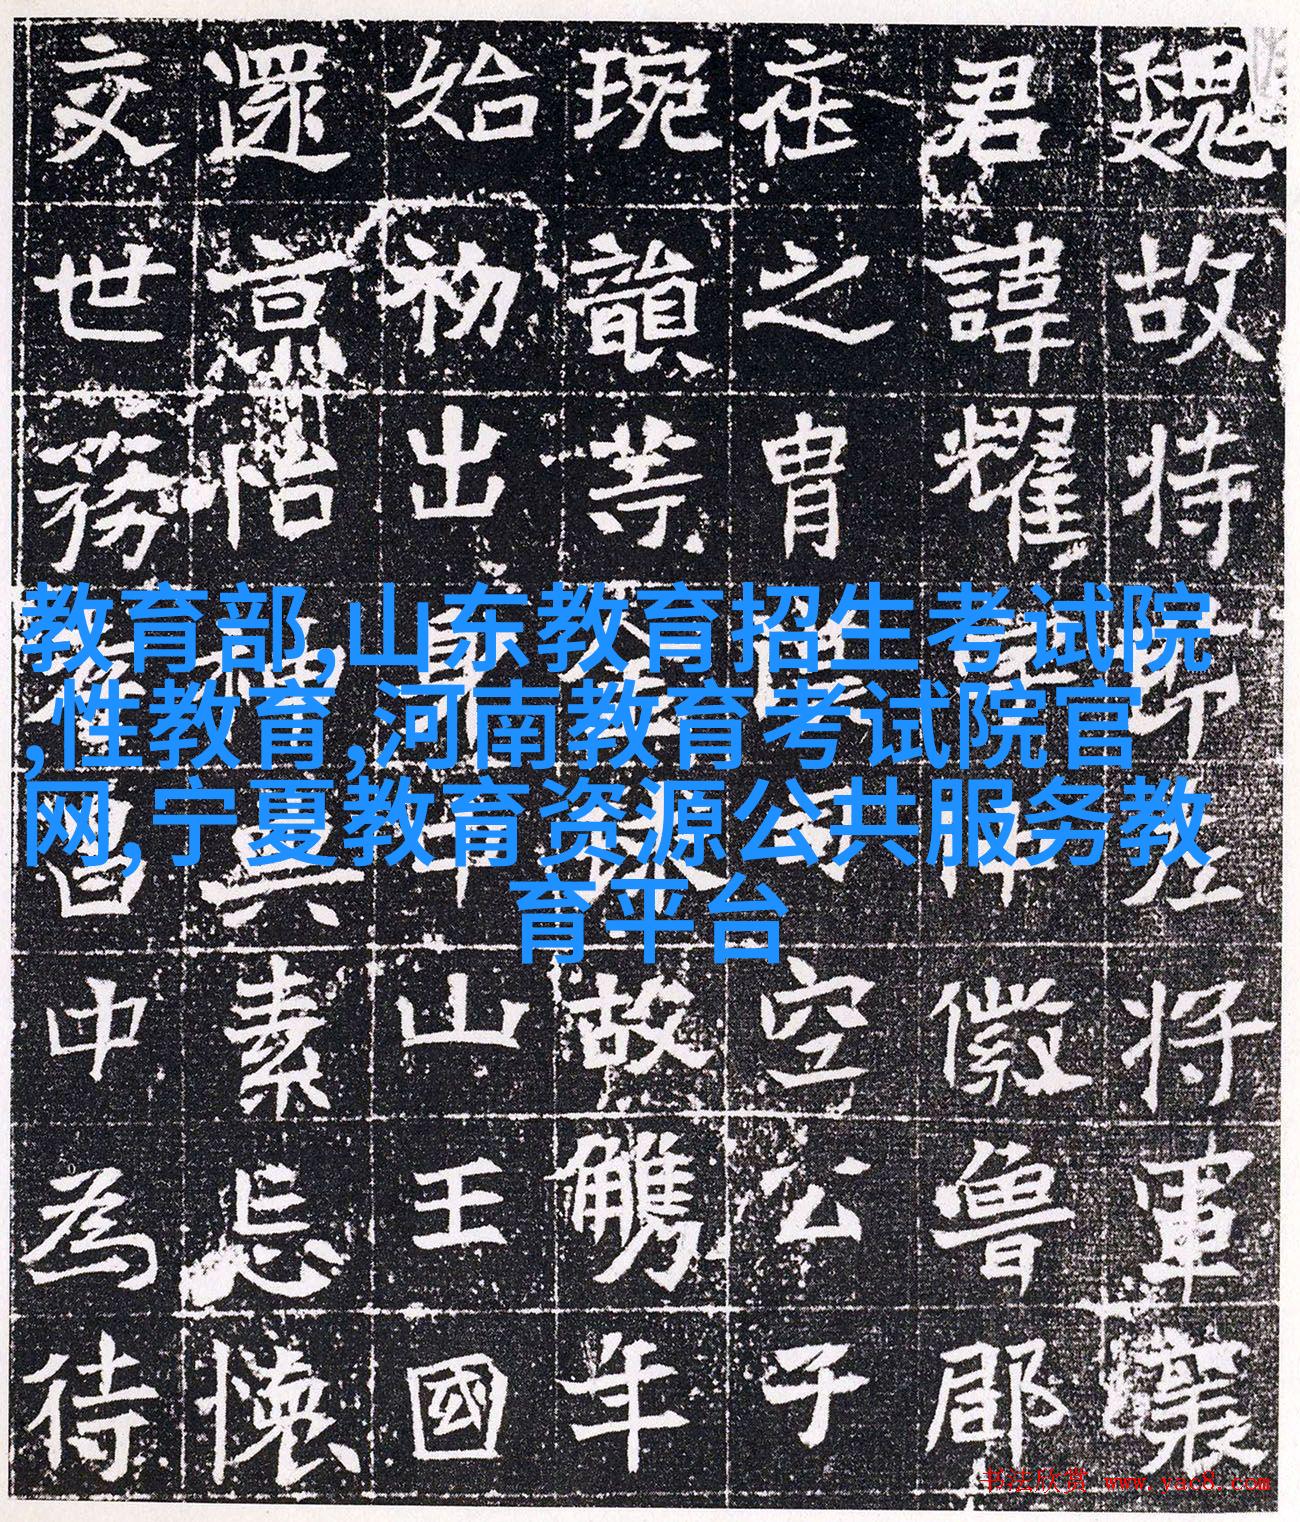 魏故持左將軍襄
君諱燿徽魯郡
之胄空公子
琬韻等故年
始初出身山王國
還京怡神典素忘懷
交世務昌中為待
教育部,山东教育招生考试院
,性教育,河南教育考试院官
网,宁夏教育资源公共服务教
育平台
书法欣赏 www.yac8.com